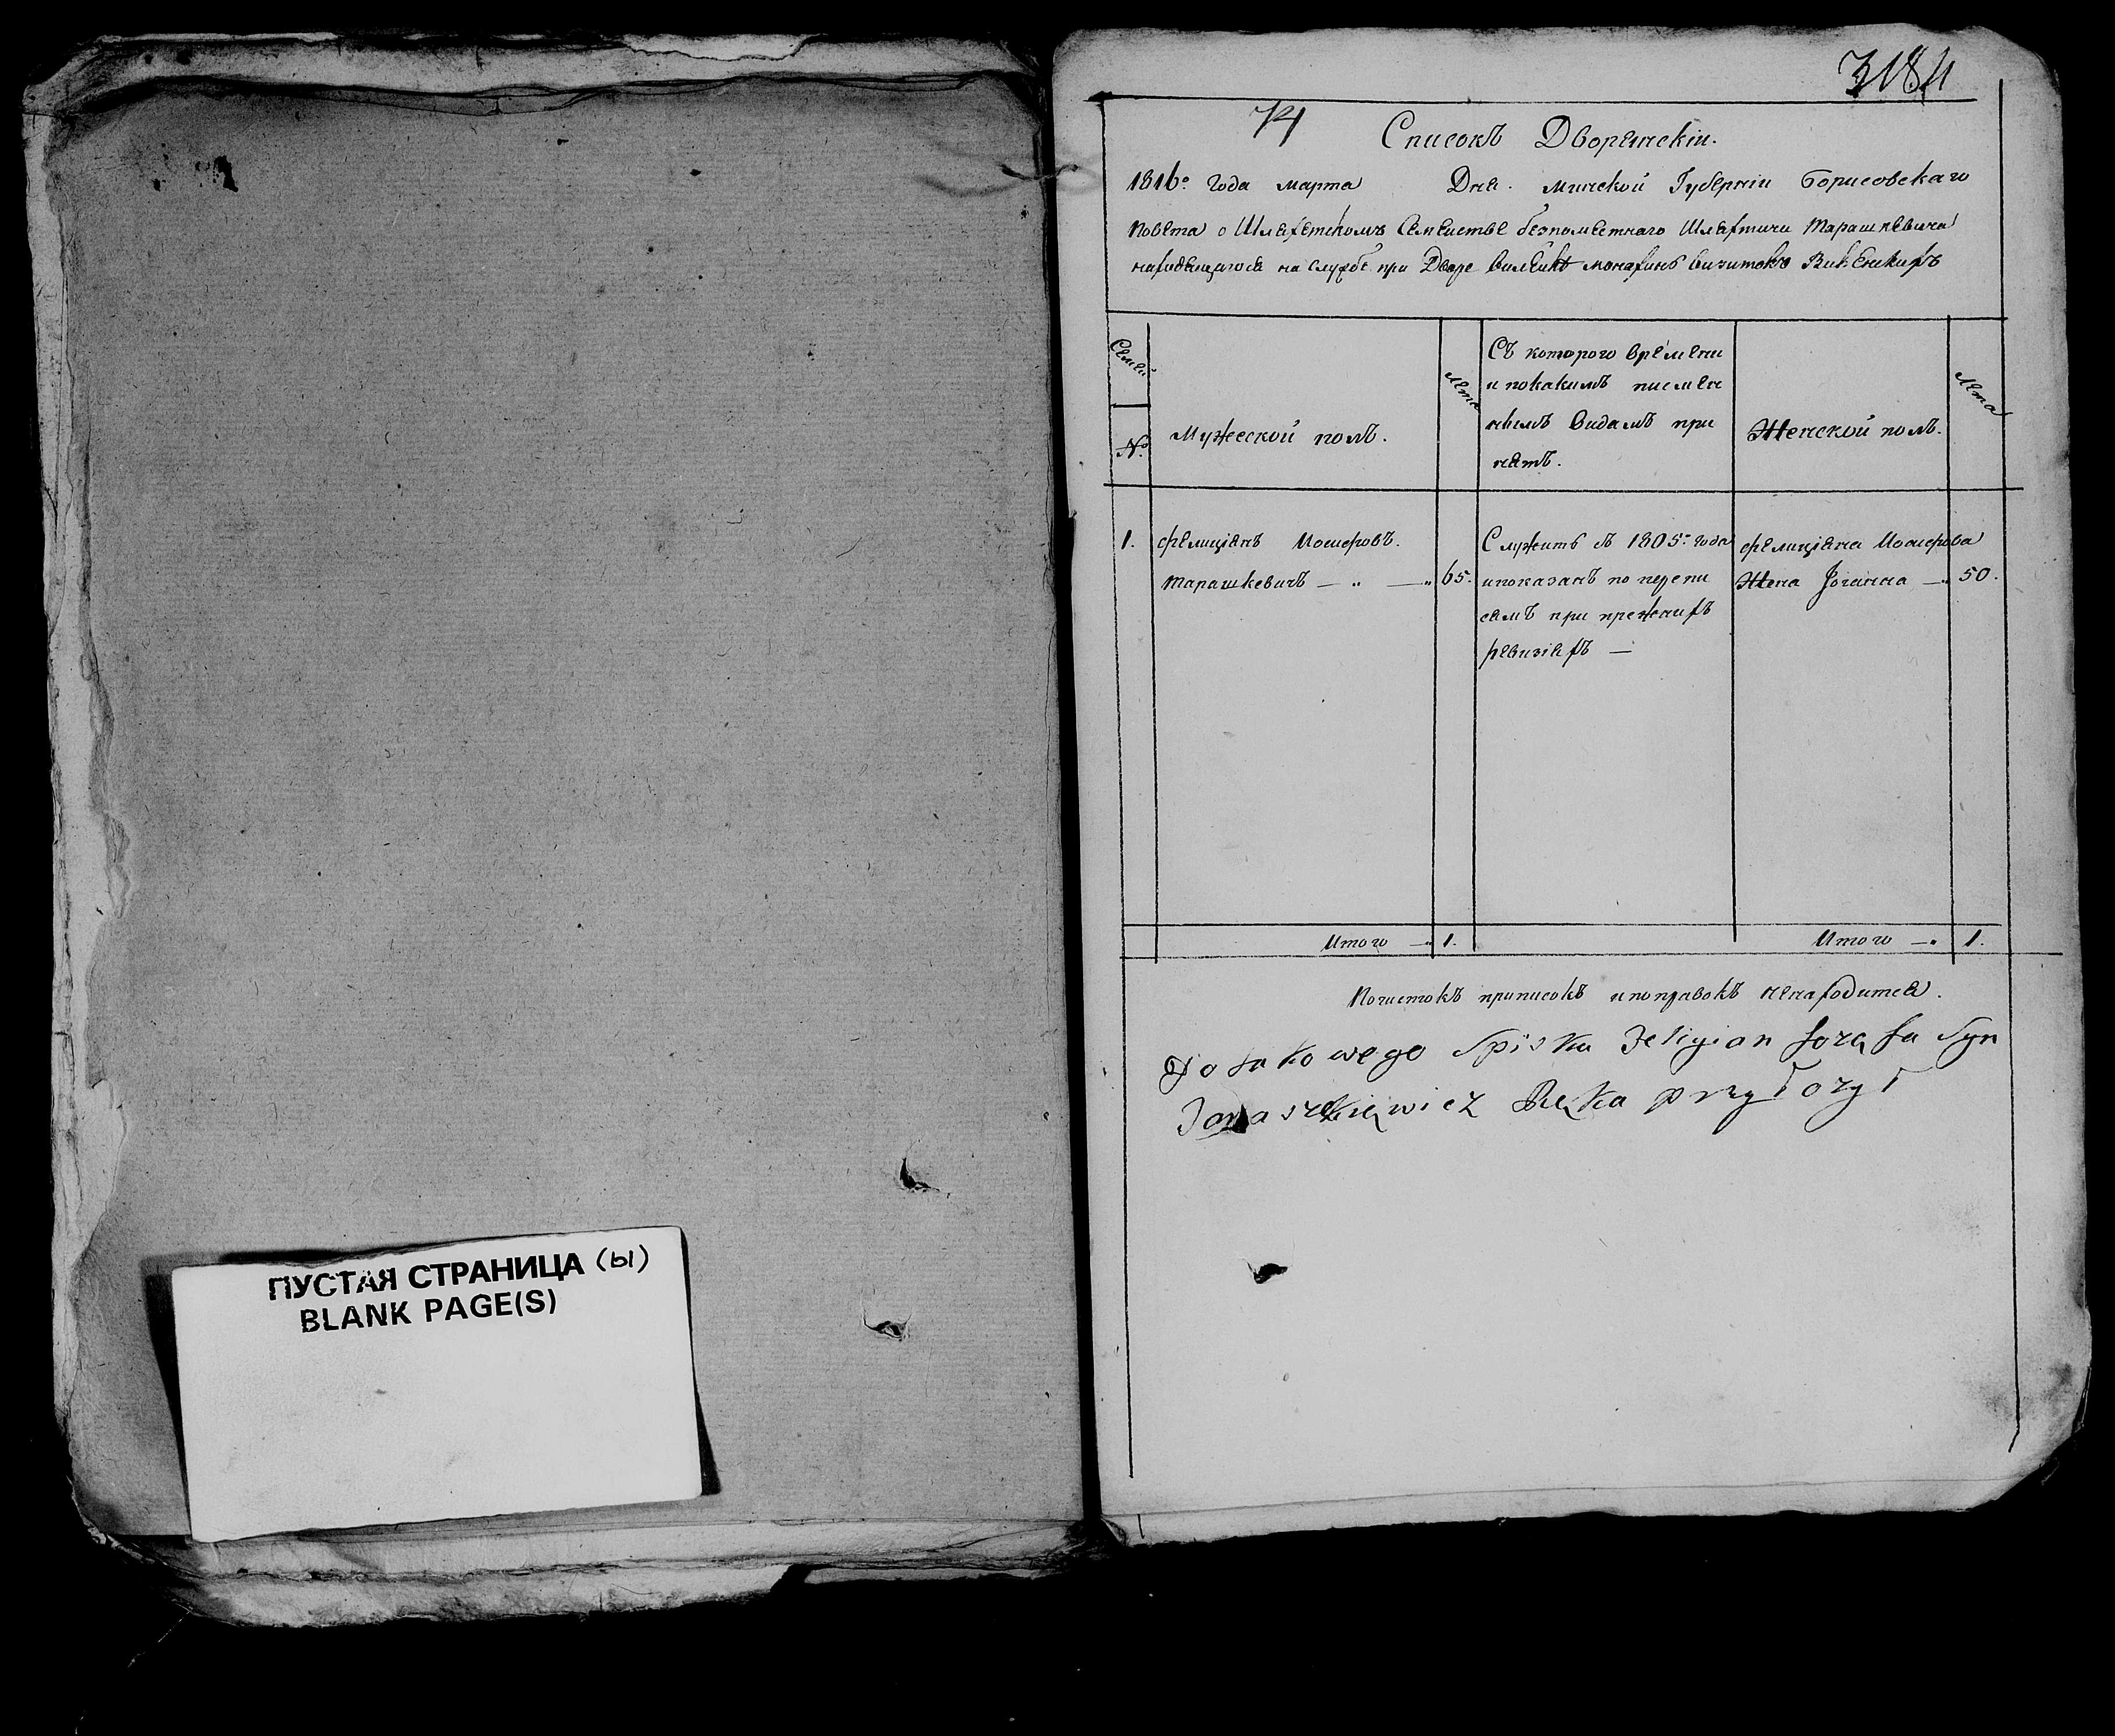 ПУСТАЯ СТРАНИЦА (ы)
BLANK PAGE(S)
74
Списокъ Дворянскiи.
1816го года марта Дня. минской Губернiи Борисовскаго
повета о Шляхетскомъ Семействе безпоместнаго Шляхтича Тарашкевича
находящагося на службе при Дворе монахинь визитокъ
Семьи
№
Мужеской полъ.
лета
Съ которого времени
и покакимъ писмен
нымъ видамъ при
нятъ.
Женской полъ.
лета
1. Фелицiянъ Иосифовъ.
Тарашкевичъ — „ — „ 65.
Служитъ съ 1805го года
ипоказанъ по перепи
сямъ при прежнихъ
ревизiяхъ —
Фелицiяна Иосифова
Жена Иоганна — „ 50.
Итого — „ 1.
Итого — „ 1.
Почистокъ приписокъ ипоправокъ ненаходится.
Do takowego Spisku Felicyian Jozefa Syn
Taraszkiewicz Ręka przyłożył